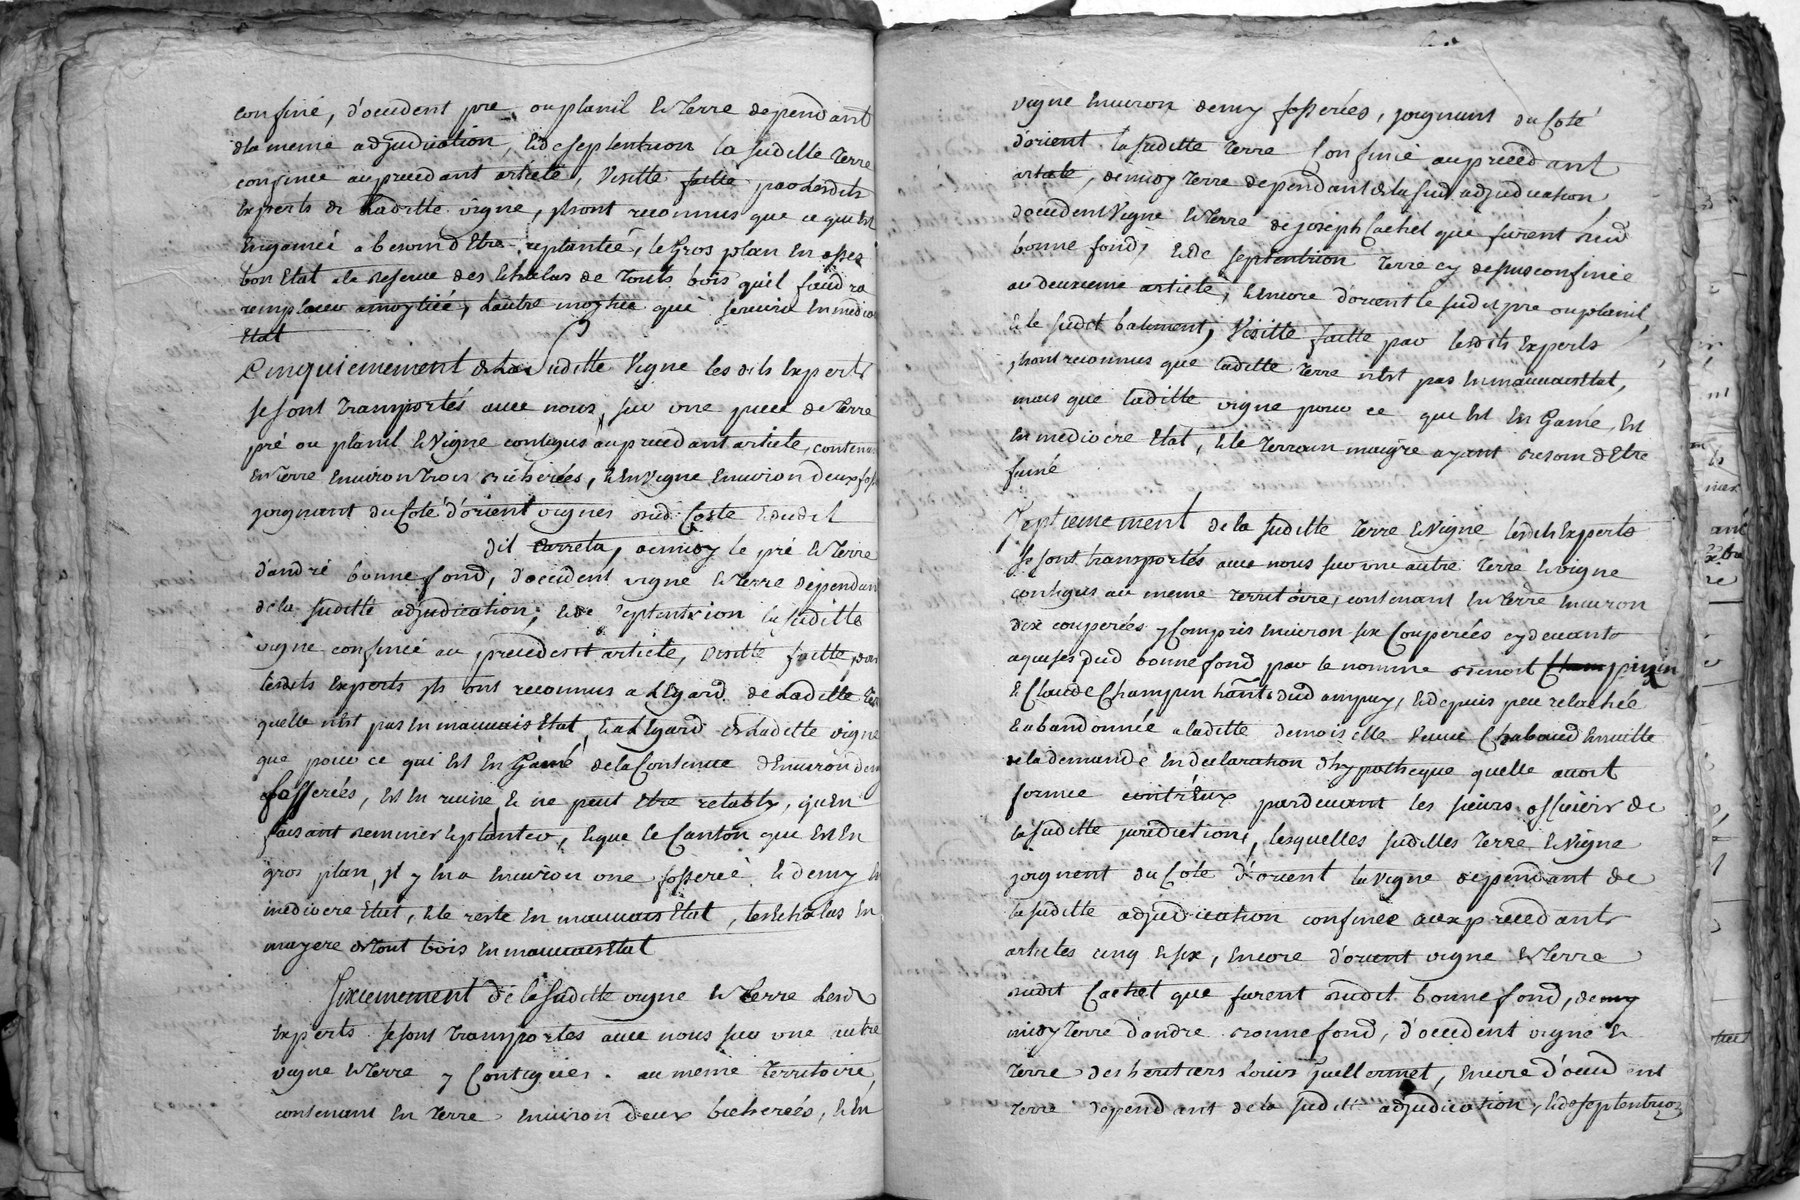 confiné, d'occident pre ou planil et Terre dependant
de la meme adjudication, et de septentrion la suditte Terre
confinée au precedant article, Visitte faitte par lesdits
Experts de laditte vigne, ils ont reconnus que ce qui est
En gamée a besoin d'Etre replantée, le Gros plan En assez
bon Etat a la reserve des Echalas de Touts bois qu'il faudra
remplacer a moytiée, L'autre moytiée que servira En medio
Etat
Cinquiemement de la suditte Vigne les dits Experts
se sont transportés avec nous, sur une piece de Terre
pré ou planil et Vigne contigus au precedant article, contena
En Terre Environ trois bicherées, et En Vigne Environ deux foss
joignant du Coté d'orient vignes dud. Coste et dudit
dit Carreta, de midy le pré et Terre
d'andré bonnefond, d'occident vigne et Terre dependan
de la suditte adjudication, et de septentrion la suditte
vigne confinée au precedent article, visitte faitte par
lesdits Experts ils ont reconnus a L'Egard de laditte Ter
quelle n'est pas En mauvais Etat, et a L'Egard de laditte vigne
que pour ce qui Est En Gamé de la Contenue d'Environ demy
fosserées, Est En ruine et ne peut Etre retably, qu'En
faisant reminer et planter, et que le Canton qui Est En
gros plan, il y En a Environ une fosserée et demy En
mediocre Etat, et le reste En mauvais Etat, les Echalas En
mayere de tout bois En mauvais Etat
Sixiemement de la suditte vigne et Terre Lesd
Experts se sont transportés avec nous sur une autre
vigne et Terre y Contigues au même Territoire,
contenant En Terre Environ deux bicherées, et En
vigne Environ demy fosserées, joignant du Coté
d'orient la suditte Terre Confinée au precedant
article, de midy Terre dependant de la sud. adjudication
d'occident Vigne et Terre de joseph Cachet que furent dud
bonnefond, et de septentrion Terre cy dessus confinée
au deuxieme article, et Encore d'orient le susdit pre ou planil,
et le susdit batiment, Visitte faitte par lesdits Experts
ils ont reconnus que laditte Terre n'Est pas En mauvais Etat,
mais que laditte vigne pour ce qui Est En Gamé, Est
En mediocre Etat, et le Terrain maigre ayant besoin d'Etre
fumé
Septiemement de la suditte Terre et Vigne lesdits Experts
se sont transportés avec nous sur une autre Terre et vigne
contigus au meme Territoire, contenant En Terre Environ
dix couperées y Compris Environ six Couperées cy devant
aquises dud bonnefond par le nommé benoit Champinin
et Claude Champin dud ampuy, et depuis peu relachée
et abandonnée a laditte demoiselle veuve Chabaud Ensuitte
de la demande En declaration d'hypotheque quelle avoit
formée contr'Eux pardevant les sieurs officiers de
la suditte juridiction, lesquelles sudittes Terre et Vigne
joignent du Coté d'orient la vigne dependant de
la suditte adjudication confinée aux precedants
articles cinq et six, Encore d'orient vigne et Terre
dudit Cachet que furent dudit bonnefond, de my
midy Terre d'andre bonnefond, d'occident vigne et
Terre des heritiers Louis Guillermet, Encore d'occident
Terre dependant de la suditt adjudication, et de septentrion